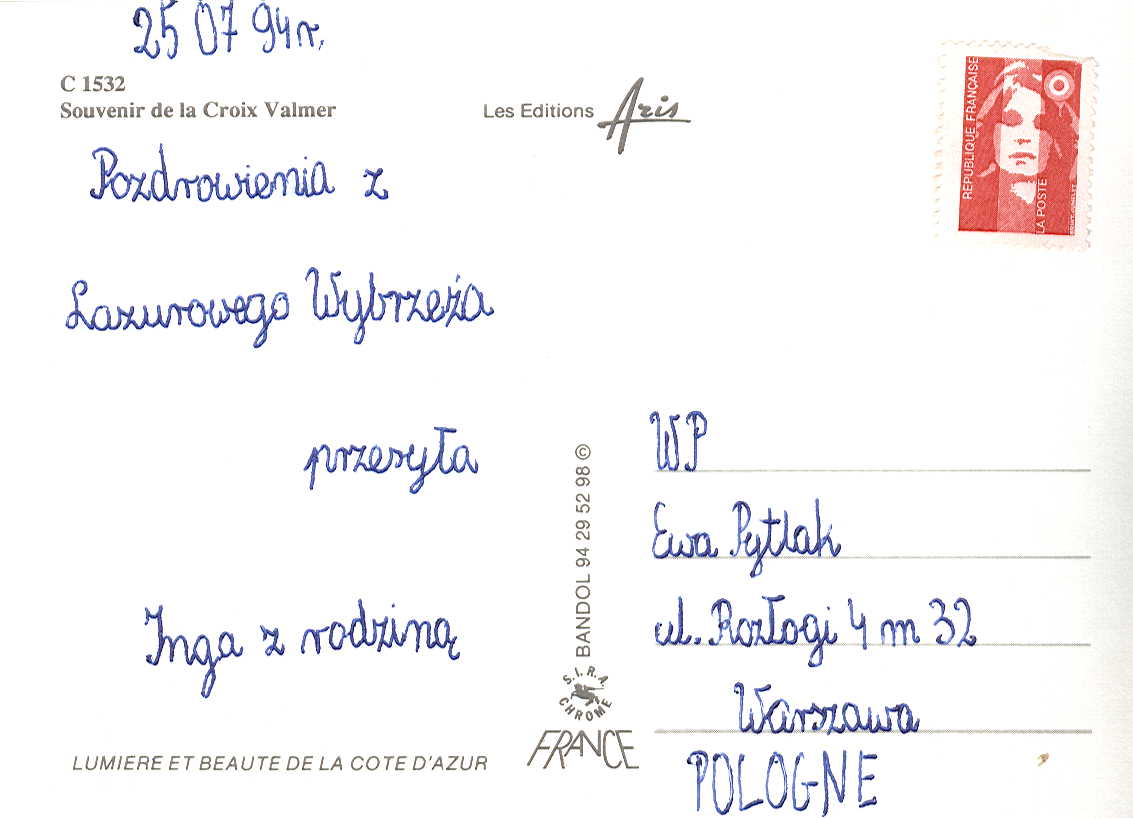 25 07 94r.
C 1532
Souvenir de la Croix Valmer
Les Editions Aris
REPUBLIQUE FRANÇAISE
LA POSTE
Pozdrowienia z
Lazurowego Wybrzeża
przesyła
Inga z rodziną
BANDOL 94 29 52 98 ©
S.I.R.A.
CHROME
FRANCE
LUMIERE ET BEAUTE DE LA COTE D'AZUR
WP
Ewa Pytlak
ul. Rozłogi 4 m 32
Warszawa
POLOGNE